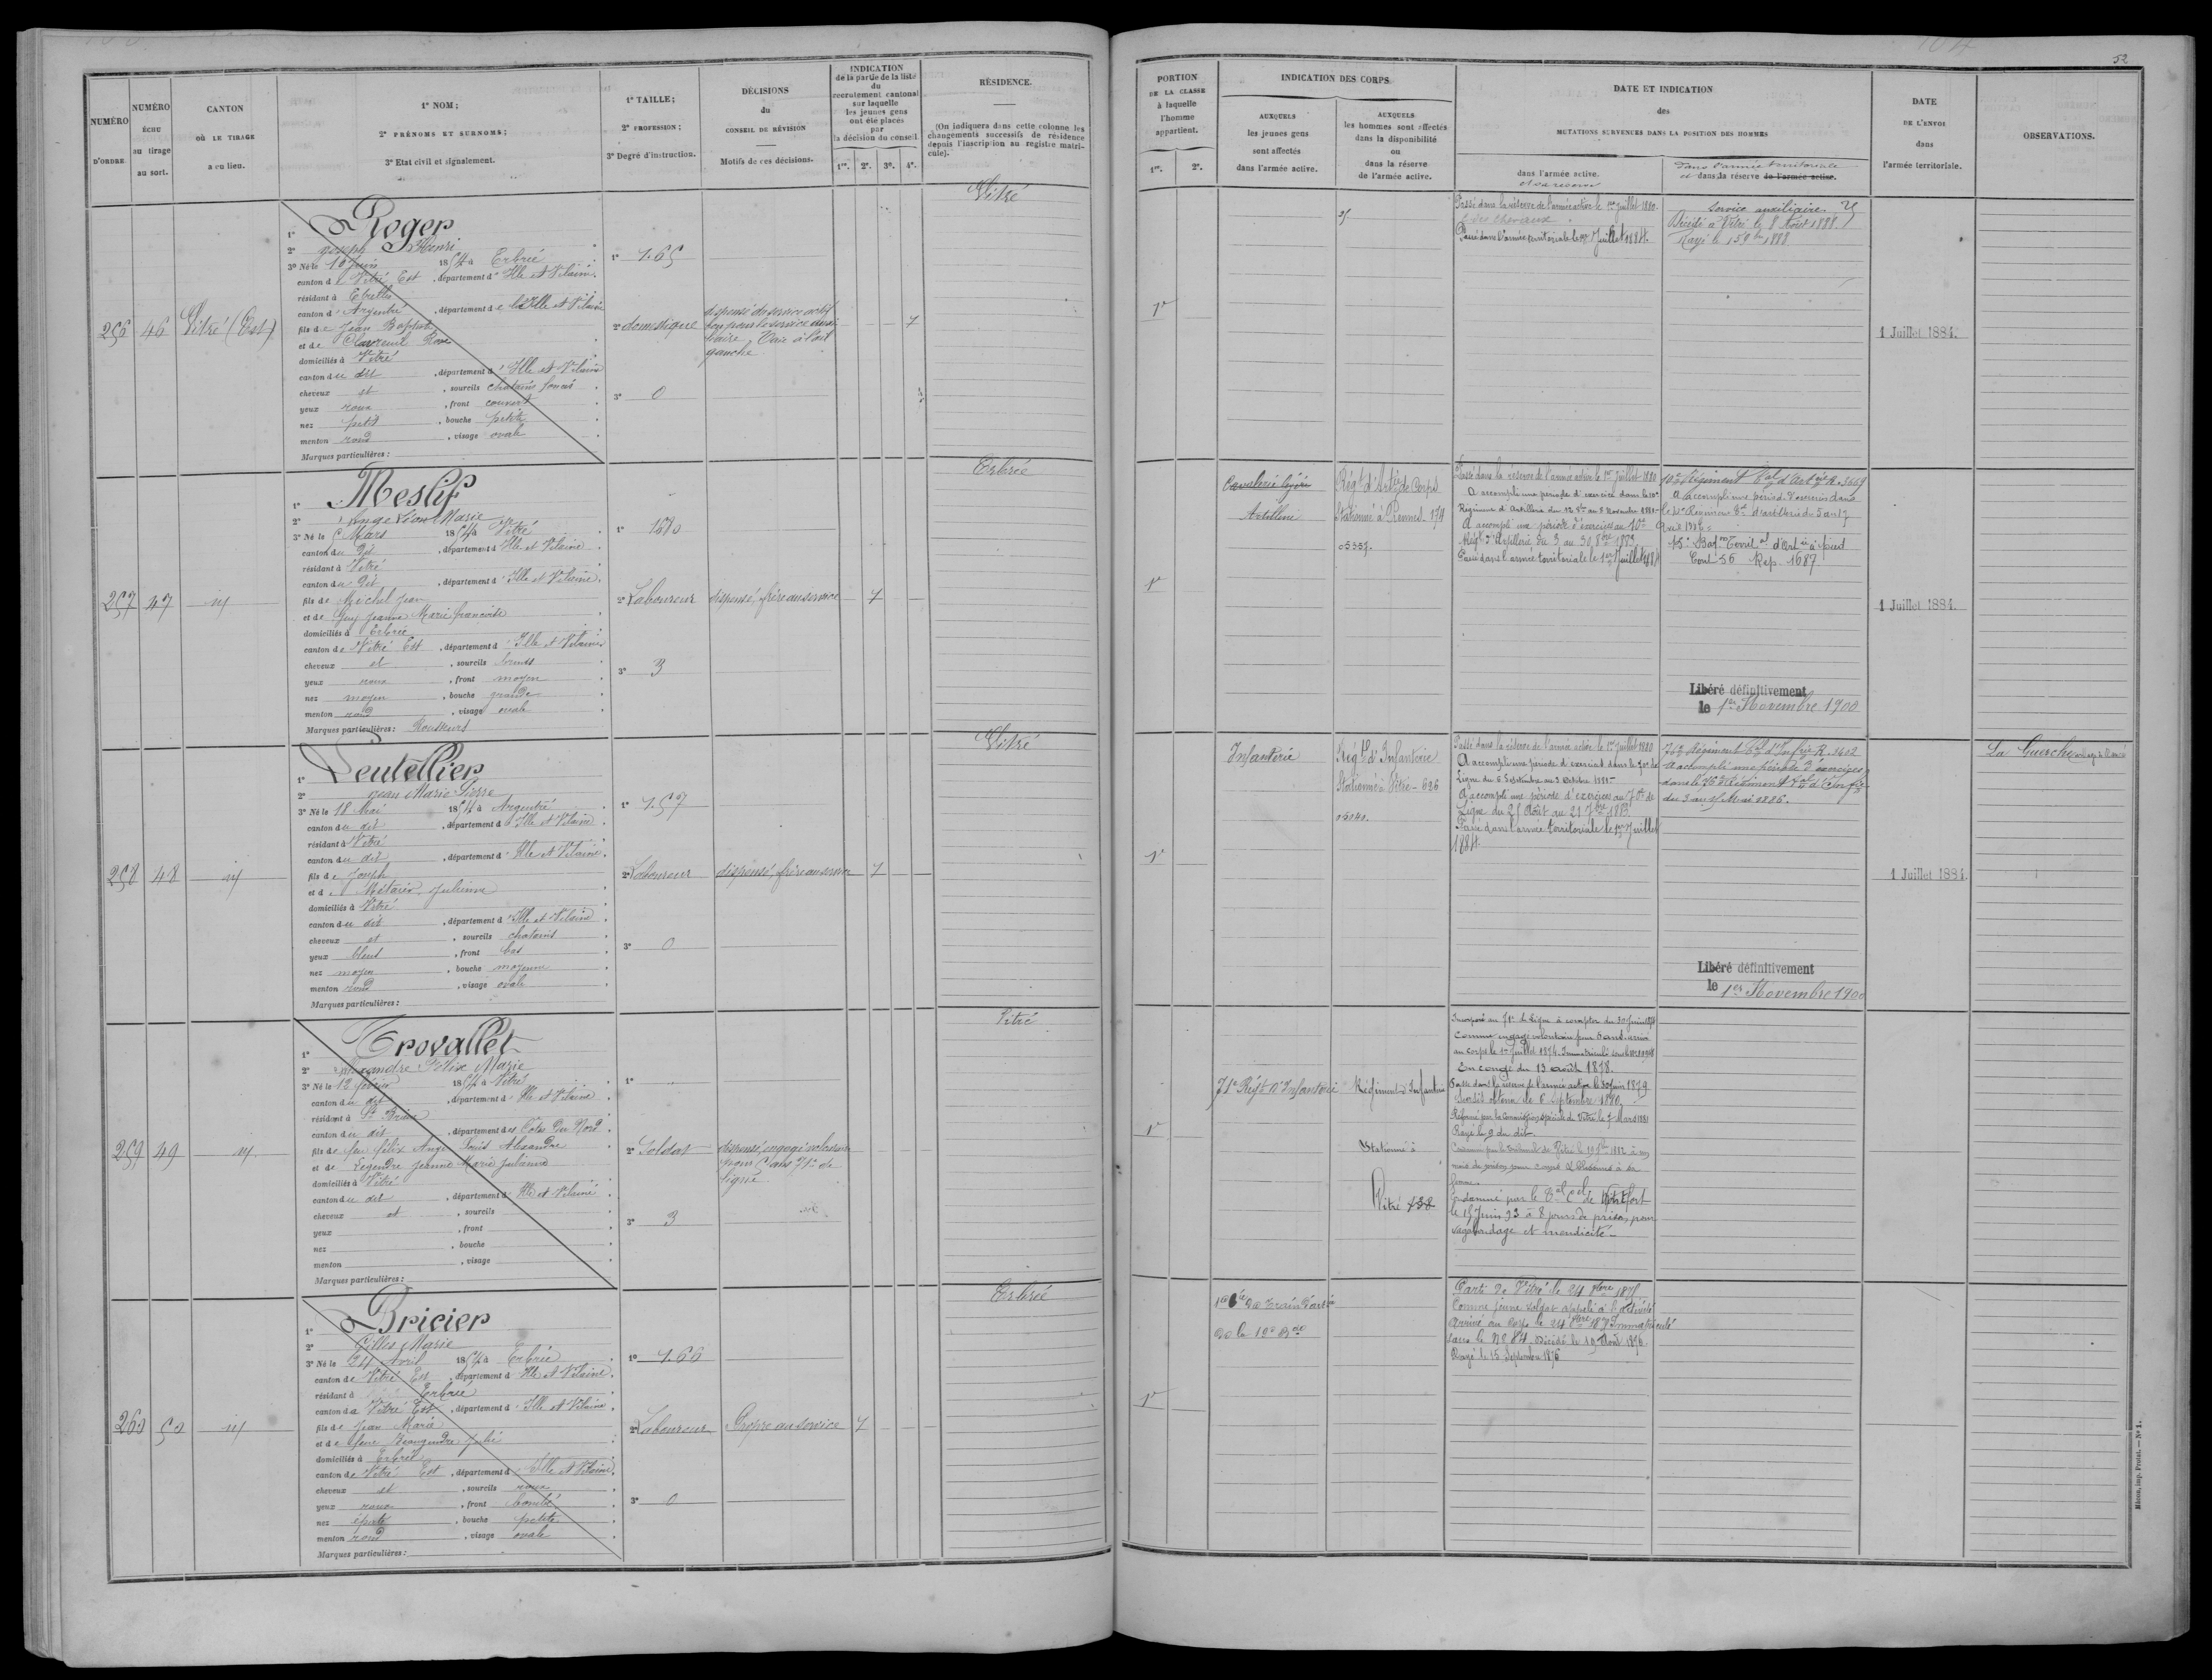 52
NUMÉRO D'ORDRE.
NUMÉRO ÉCHU au tirage au sort.
CANTON OÙ LE TIRAGE a eu lieu.
1° NOM;
2° PRÉNOMS ET SURNOMS;
3° Etat civil et signalement.
1° TAILLE;
2° PROFESSION;
3° Degré d'instruction.
DÉCISIONS du CONSEIL DE RÉVISION
Motifs de ces décisions.
INDICATION de la partie de la liste du recrutement cantonal sur laquelle les jeunes gens ont été placés par la décision du conseil.
1re. 2e. 3e. 4e.
RÉSIDENCE.
(On indiquera dans cette colonne les changements successifs de résidence depuis l'inscription au registre matricule).
PORTION DE LA CLASSE à laquelle l'homme appartient.
1re. 2e.
INDICATION DES CORPS
AUXQUELS les jeunes gens sont affectés dans l'armée active.
AUXQUELS les hommes sont affectés dans la disponibilité ou dans la réserve de l'armée active.
DATE ET INDICATION des MUTATIONS SURVENUES DANS LA POSITION DES HOMMES
dans l'armée active.
et sa réserve
dans l'armée territoriale
et dans sa réserve de l'armée active.
DATE DE L'ENVOI dans l'armée territoriale.
OBSERVATIONS.
256
46
Vitré (Est)
1° Roger
2° Joseph Henri
3° Né le 10 Juin 1854 à Erbrée
canton de Vitré Est, département d'Ille et Vilaine.
résidant à Etrelles
canton d'Argentré, département de l'Ille et Vilaine
fils de Jean Baptiste
et de Clavreuil Rose
domiciliés à Vitré
canton du dit, département d'Ille et Vilaine
cheveux et, sourcils chatains foncés
yeux roux, front couvert
nez petit, bouche petite
menton rond, visage ovale
Marques particulières :
1° 1.65
2° domestique
3° 0
dispensé du service actif
bon pour le service auxi-
liaire. Taie à l'œil
gauche
Vitré
1e
Passé dans la réserve de l'armée active le 1er Juillet 1880.
des chevaux
Passé dans l'armée territoriale le 1er Juillet 1884.
Service auxiliaire
Décédé à Vitré le 8 Août 1888.
Rayé le 15 9bre 1888
1 Juillet 1884.
257
47
id
1° Meslif
2° Ange Léon Marie
3° Né le 5 Mars 1854 à Vitré
canton du dit, département d'Ille et Vilaine
résidant à Vitré
canton du dit, département d'Ille et Vilaine.
fils de Michel Jean
et de Guy Jeanne Marie Françoise
domiciliés à Erbrée
canton de Vitré Est, département d'Ille et Vilaine
cheveux et, sourcils bruns
yeux roux, front moyen
nez moyen, bouche grande
menton rond, visage ovale
Marques particulières : Rousseurs
1° 1680
2° Laboureur
3° 3
dispensé, frère au service
Erbrée
1e
Cavalerie légère
Artillerie
Régt d'Artie de Corps
Stationné à Rennes - 174
Passé dans la réserve de l'armée active le 1er Juillet 1880
A accompli une période d'exercice dans le 10e
Régiment d'Artillerie du 12 8bre au 8 Novembre 1881-
A accompli une période d'exercices au 10e
Régt d'Artillerie du 3 au 30 8bre 1883
Passé dans l'armée territoriale le 1er Juillet 1884
10e Régiment Tal d'Artie R. 3669
A accompli une période d'exercices dans
le 10e Régiment Tal d'artillerie du 5 au 17
Avril 1886
15e Baton Territal d'Artie à pied
Cont 56 Rep. 1687
Libéré définitivement
le 1er Novembre 1900
1 Juillet 1884.
258
48
id
1° Leutellier
2° Jean Marie Pierre
3° Né le 18 Mai 1854 à Argentré
canton du dit, département d'Ille et Vilaine.
résidant à Vitré
canton du dit, département d'Ille et Vilaine.
fils de Joseph
et de Métairie Julienne
domiciliés à Vitré
canton du dit, département d'Ille et Vilaine
cheveux et, sourcils chatains
yeux bleus, front bas
nez moyen, bouche moyenne
menton rond, visage ovale
Marques particulières :
1° 1.57
2° Laboureur
3° 0
dispensé, frère au service
Vitré
1e
Infanterie
Régt d'Infanterie
Stationné à Vitré - 626
Passé dans la réserve de l'armée active le 1er Juillet 1880
A accompli une période d'exercices dans le 70e de
Ligne du 6 Septembre au 3 Octobre 1881-
A accompli une période d'exercices au 70e de
Ligne du 25 Août au 21 7bre 1883
Passé dans l'armée territoriale le 1er Juillet
1884.
76e Régiment Tal d'Infrie R. 3602
A accompli une période d'exercices
dans le 76e Régiment Tal d'Infie
du 3 au 15 Mai 1886.
Libéré définitivement
le 1er Novembre 1900
1 Juillet 1884.
La Guerche
259
49
id.
1° Trovallet
2° Alexandre Félix Marie
3° Né le 12 février 1854 à Vitré
canton du dit, département d'Ille et Vilaine
résidant à St Brieuc
canton du dit, département des Côtes du Nord
fils de feu Félix Ange Louis Alexandre
et de Legendre Jeanne Marie Julienne
domiciliés à Vitré
canton du dit, département d'Ille et Vilaine
cheveux et, sourcils
yeux, front
nez, bouche
menton, visage
Marques particulières :
1°
2° Soldat
3° 3
dispensé, engagé volontaire
pour 5 ans 71e de
ligne
Vitré
1e
71e Régt d'Infanterie
Régiment d'Infanterie
Stationné à
Vitré 138
Incorporé au 71e de Ligne à compter du 30 Juin 1874
Comme engagé volontaire pour 5 ans, arrivé
au corps le 1er Juillet 1874. Immatriculé sous le
En congé du 13 août 1878.
Passé dans la réserve de l'armée active le 30 Juin 1879
le 6 Septembre 1880.
Réformé par la Commission spéciale de Vitré le 7 Mars 1881
Rayé le 9 du dit.
Condamné par le Tribunal de Vitré le 19 1882 à un
mois de prison pour coups & blessures à sa
femme.
Condamné par le Tal Cel de Montfort
le 15 Juin 93 à 8 jours de prison, pour
vagabondage et mendicité.
260
50
id
1° Bricier
2° Gilles Marie
3° Né le 24 Avril 1854 à Erbrée
canton de Vitré Est, département d'Ille et Vilaine.
résidant à Erbrée
canton de Vitré Est, département d'Ille et Vilaine.
fils de Jean Marie
et de feue Beaugendre Julie
domiciliés à Erbrée
canton de Vitré Est, département d'Ille et Vilaine.
cheveux et, sourcils roux
yeux roux, front bombé
nez épaté, bouche petite
menton rond, visage ovale
Marques particulières :
1° 1.66
2° Laboureur
3° 0
Propre au service
Erbrée
1e
1e Cie du Train d'artie
de la 19e Bde
Parti de Vitré le 24 8bre 1875
Comme jeune soldat appelé à l'activité
Arrivé au Corps le 24 8bre 1875 Immatriculé
sous le No 84. Décédé le 19 Août 1876.
Rayé le 15 Septembre 1876
Mâcon, imp. Protat. — No 1.